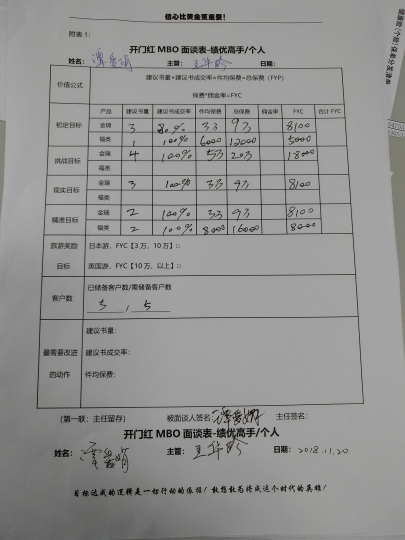 信心比黄金更重要！
附表1：
开门红 MBO 面谈表-绩优高手/个人
姓名： 主管：王华玲 日期：
价值公式 建议书量*建议书成交率*件均保费=总保费（FYP）
保费*佣金率=FYC
产品 建议书量 建议书成交率 件均保费 总保费 佣金率 FYC 合计FYC
初定目标 金瑞 3 100% 3万 9万 8100
福类 1 100% 6000 12000 5000
挑战目标 金瑞 4 100% 5万 20万 18000
福类
现实目标 金瑞 3 100% 3万 9万 8100
福类
精准目标 金瑞 2 100% 3万 9万 8100
福类 2 100% 8000 16000 8000
旅游奖励 日本游，FYC【3万，10万】□
目标 英国游，FYC【10万，以上】□
客户数 已储备客户数/需储备客户数
3 / 5
最需要改进的动作 建议书量：
建议书成交率：
件均保费：
（第一联：主任留存） 被面谈人签名： 主任签名：
开门红 MBO 面谈表-绩优高手/个人
姓名： 主管：王华玲 日期：2018.11.20
目标达成的逻辑是一切行动的保信！敢想敢为将成这个时代的英雄！